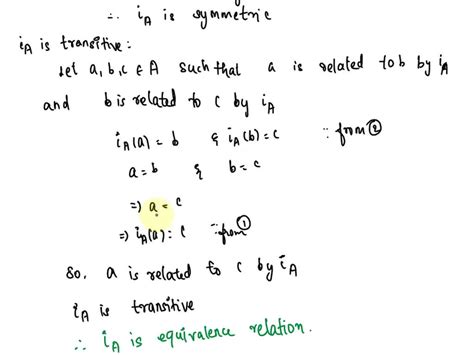 ∴ i_A is symmetric
i_A is transitive :
Let a, b, c ∈ A such that a is related to b by i_A
and b is related to c by i_A
i_A(a) = b & i_A(b) = c ∵ from ②
a = b & b = c
⇒ a = c
⇒ i_A(a) = c ∵ from ①
So, a is related to c by i_A
i_A is transitive
∴ i_A is equivalence relation.